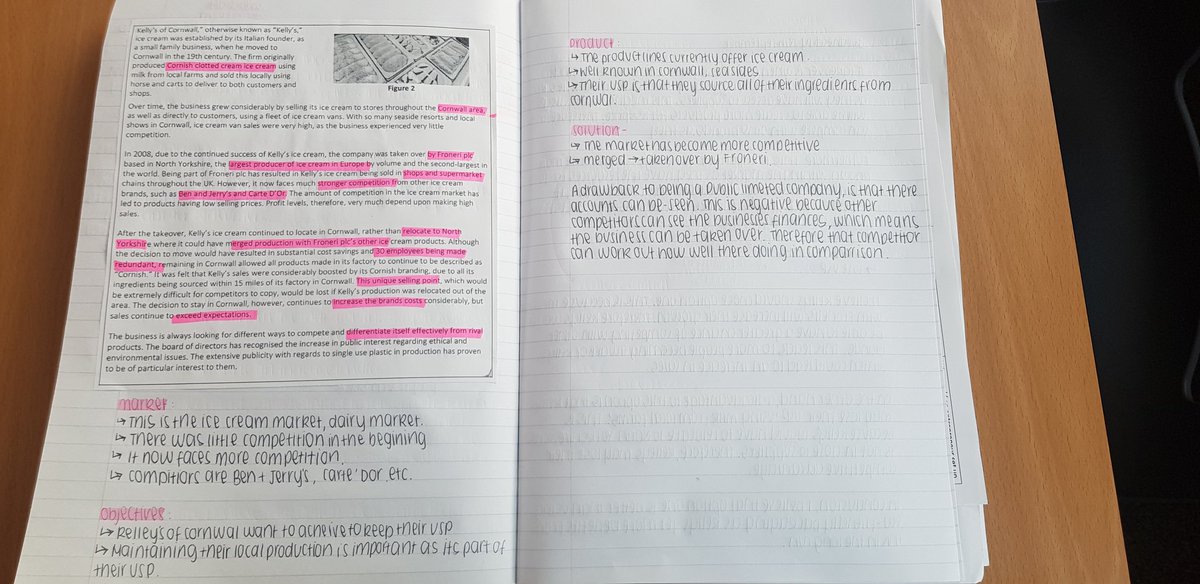 Kelly's of Cornwall," otherwise known as "Kelly's,"
ice cream was established by its Italian founder, as
a small family business, when he moved to
Cornwall in the 19th century. The firm originally
produced Cornish clotted cream ice cream using
milk from local farms and sold this locally using
horse and carts to deliver to both customers and
shops.
Figure 2
Over time, the business grew considerably by selling its ice cream to stores throughout the Cornwall area,
as well as directly to customers, using a fleet of ice cream vans. With so many seaside resorts and local
shows in Cornwall, ice cream van sales were very high, as the business experienced very little
competition.
In 2008, due to the continued success of Kelly's ice cream, the company was taken over by Froneri plc
based in North Yorkshire, the largest producer of ice cream in Europe by volume and the second-largest in
the world. Being part of Froneri plc has resulted in Kelly's ice cream being sold in shops and supermarket
chains throughout the UK. However, it now faces much stronger competition from other ice cream
brands, such as Ben and Jerry's and Carte D'Or. The amount of competition in the ice cream market has
led to products having low selling prices. Profit levels, therefore, very much depend upon making high
sales.
After the takeover, Kelly's ice cream continued to locate in Cornwall, rather than relocate to North
Yorkshire where it could have merged production with Froneri plc's other ice cream products. Although
the decision to move would have resulted in substantial cost savings and 30 employees being made
redundant, remaining in Cornwall allowed all products made in its factory to continue to be described as
"Cornish." It was felt that Kelly's sales were considerably boosted by its Cornish branding, due to all its
ingredients being sourced within 15 miles of its factory in Cornwall. This unique selling point, which would
be extremely difficult for competitors to copy, would be lost if Kelly's production was relocated out of the
area. The decision to stay in Cornwall, however, continues to increase the brands costs considerably, but
sales continue to exceed expectations.
The business is always looking for different ways to compete and differentiate itself effectively from rival
products. The board of directors has recognised the increase in public interest regarding ethical and
environmental issues. The extensive publicity with regards to single use plastic in production has proven
to be of particular interest to them.
market:
↳ This is the ice cream market, dairy market.
↳ There was little competition in the begining
↳ it now faces more competition.
↳ compitiors are Ben + Jerry's, carte'Dor. etc.
objectives:
↳ Kelley's of cornwal want to acheive to keep their USP
↳ Maintaining their local production is important as its part of
their USP.
product:
↳ The product lines currently offer ice cream.
↳ Well known in cornwall, seasides
↳ Their USP is that they source all of their ingredients from
cornwal.
solution -
↳ The market has become more competitive
↳ merged → taken over by Froneri.
A drawback to being a public limeted company, is that there
accounts can be seen. This is negative because other
competitors can see the businesses finances, which means
the business can be taken over. Therefore that competitor
can work out how well there doing in comparrison.